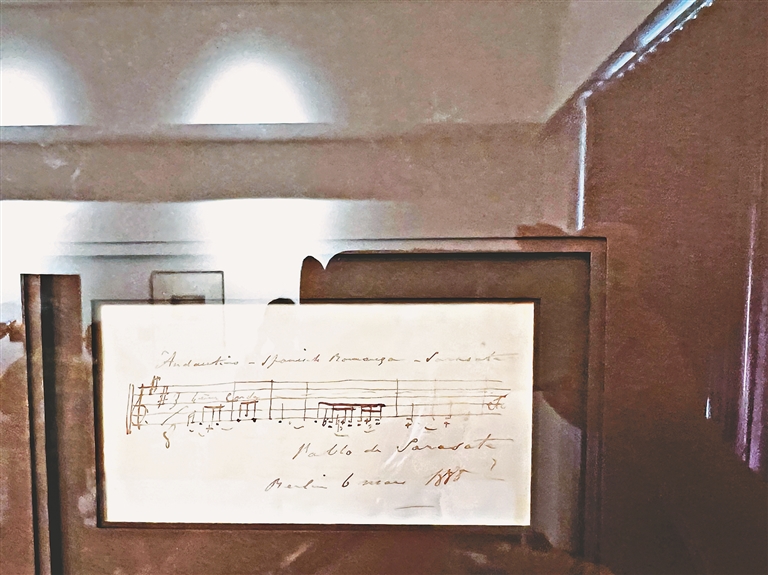 Andantino - Spanish Romanza - Sarasate
Pablo de Sarasate
Berlin 6 mai 1885